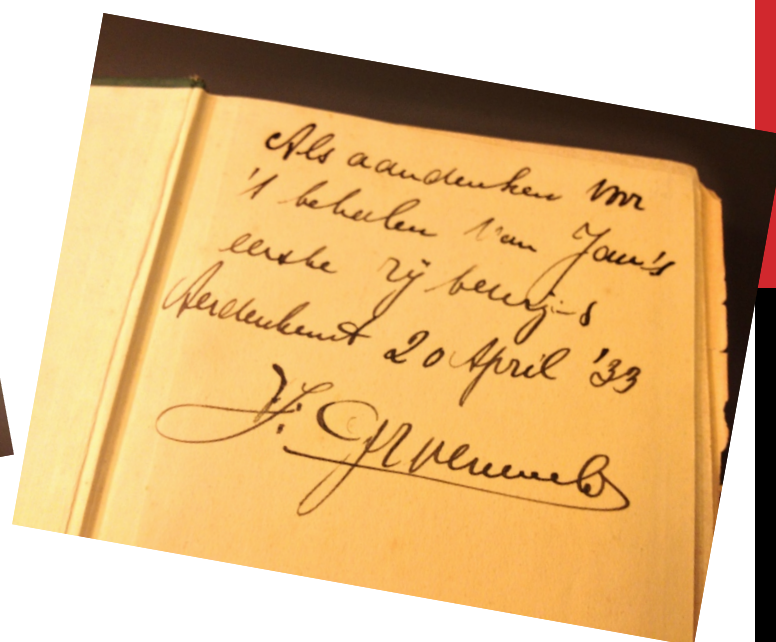 Als aandenken voor
't behalen van Jan's
eerste rijbewijs
Aerdenhout 20 April '33